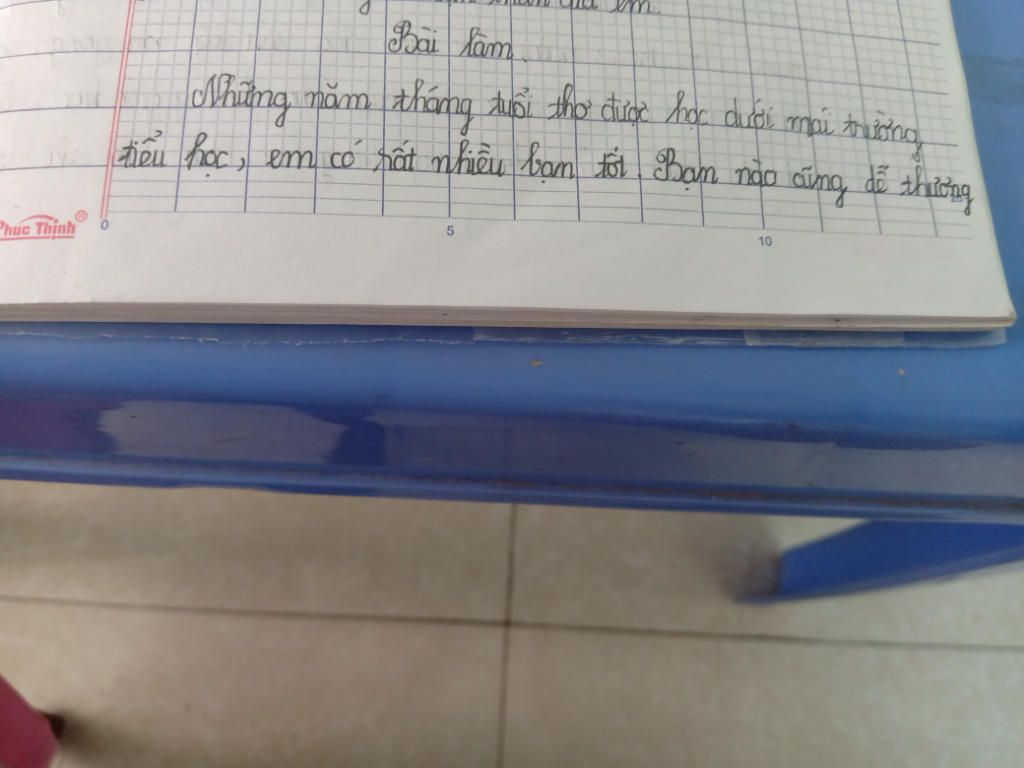 em.
Bài làm.
Những năm tháng tuổi thơ được học dưới mái trường
tiểu học, em có rất nhiều bạn tốt. Bạn nào cũng dễ thương
Phuc Thịnh®
0 5 10